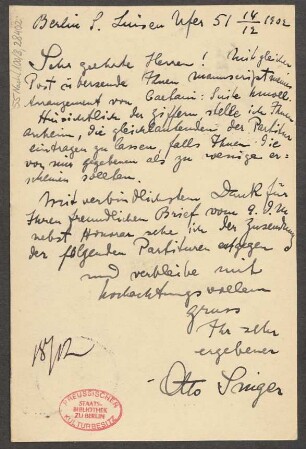 Berlin S. Luisen Ufer 51 14/12 1902
Sehr geehrte Herren! Mit gleicher
Post übersende Ihnen manuscript meines
Arrangement von Caetani: Suite h moll.
Hinsichtlich der Ziffern stelle ich Ihnen
anheim, die gleichlautenden der Partitur
eintragen zu lassen, falls Ihnen die
von mir gegebenen als zu wenige er-
scheinen sollten.
Mit verbindlichstem Dank für
Ihren freundlichen Brief vom 9. d. M.
nebst Honorar sehe ich der Zusendung
der folgenden Partituren entgegen
und verbleibe mit
hochachtungsvollem
Gruss
Ihr sehr
ergebener
Otto Singer
PREUSSISCHER
STAATS-
BIBLIOTHEK
ZU BERLIN
KULTURBESITZ